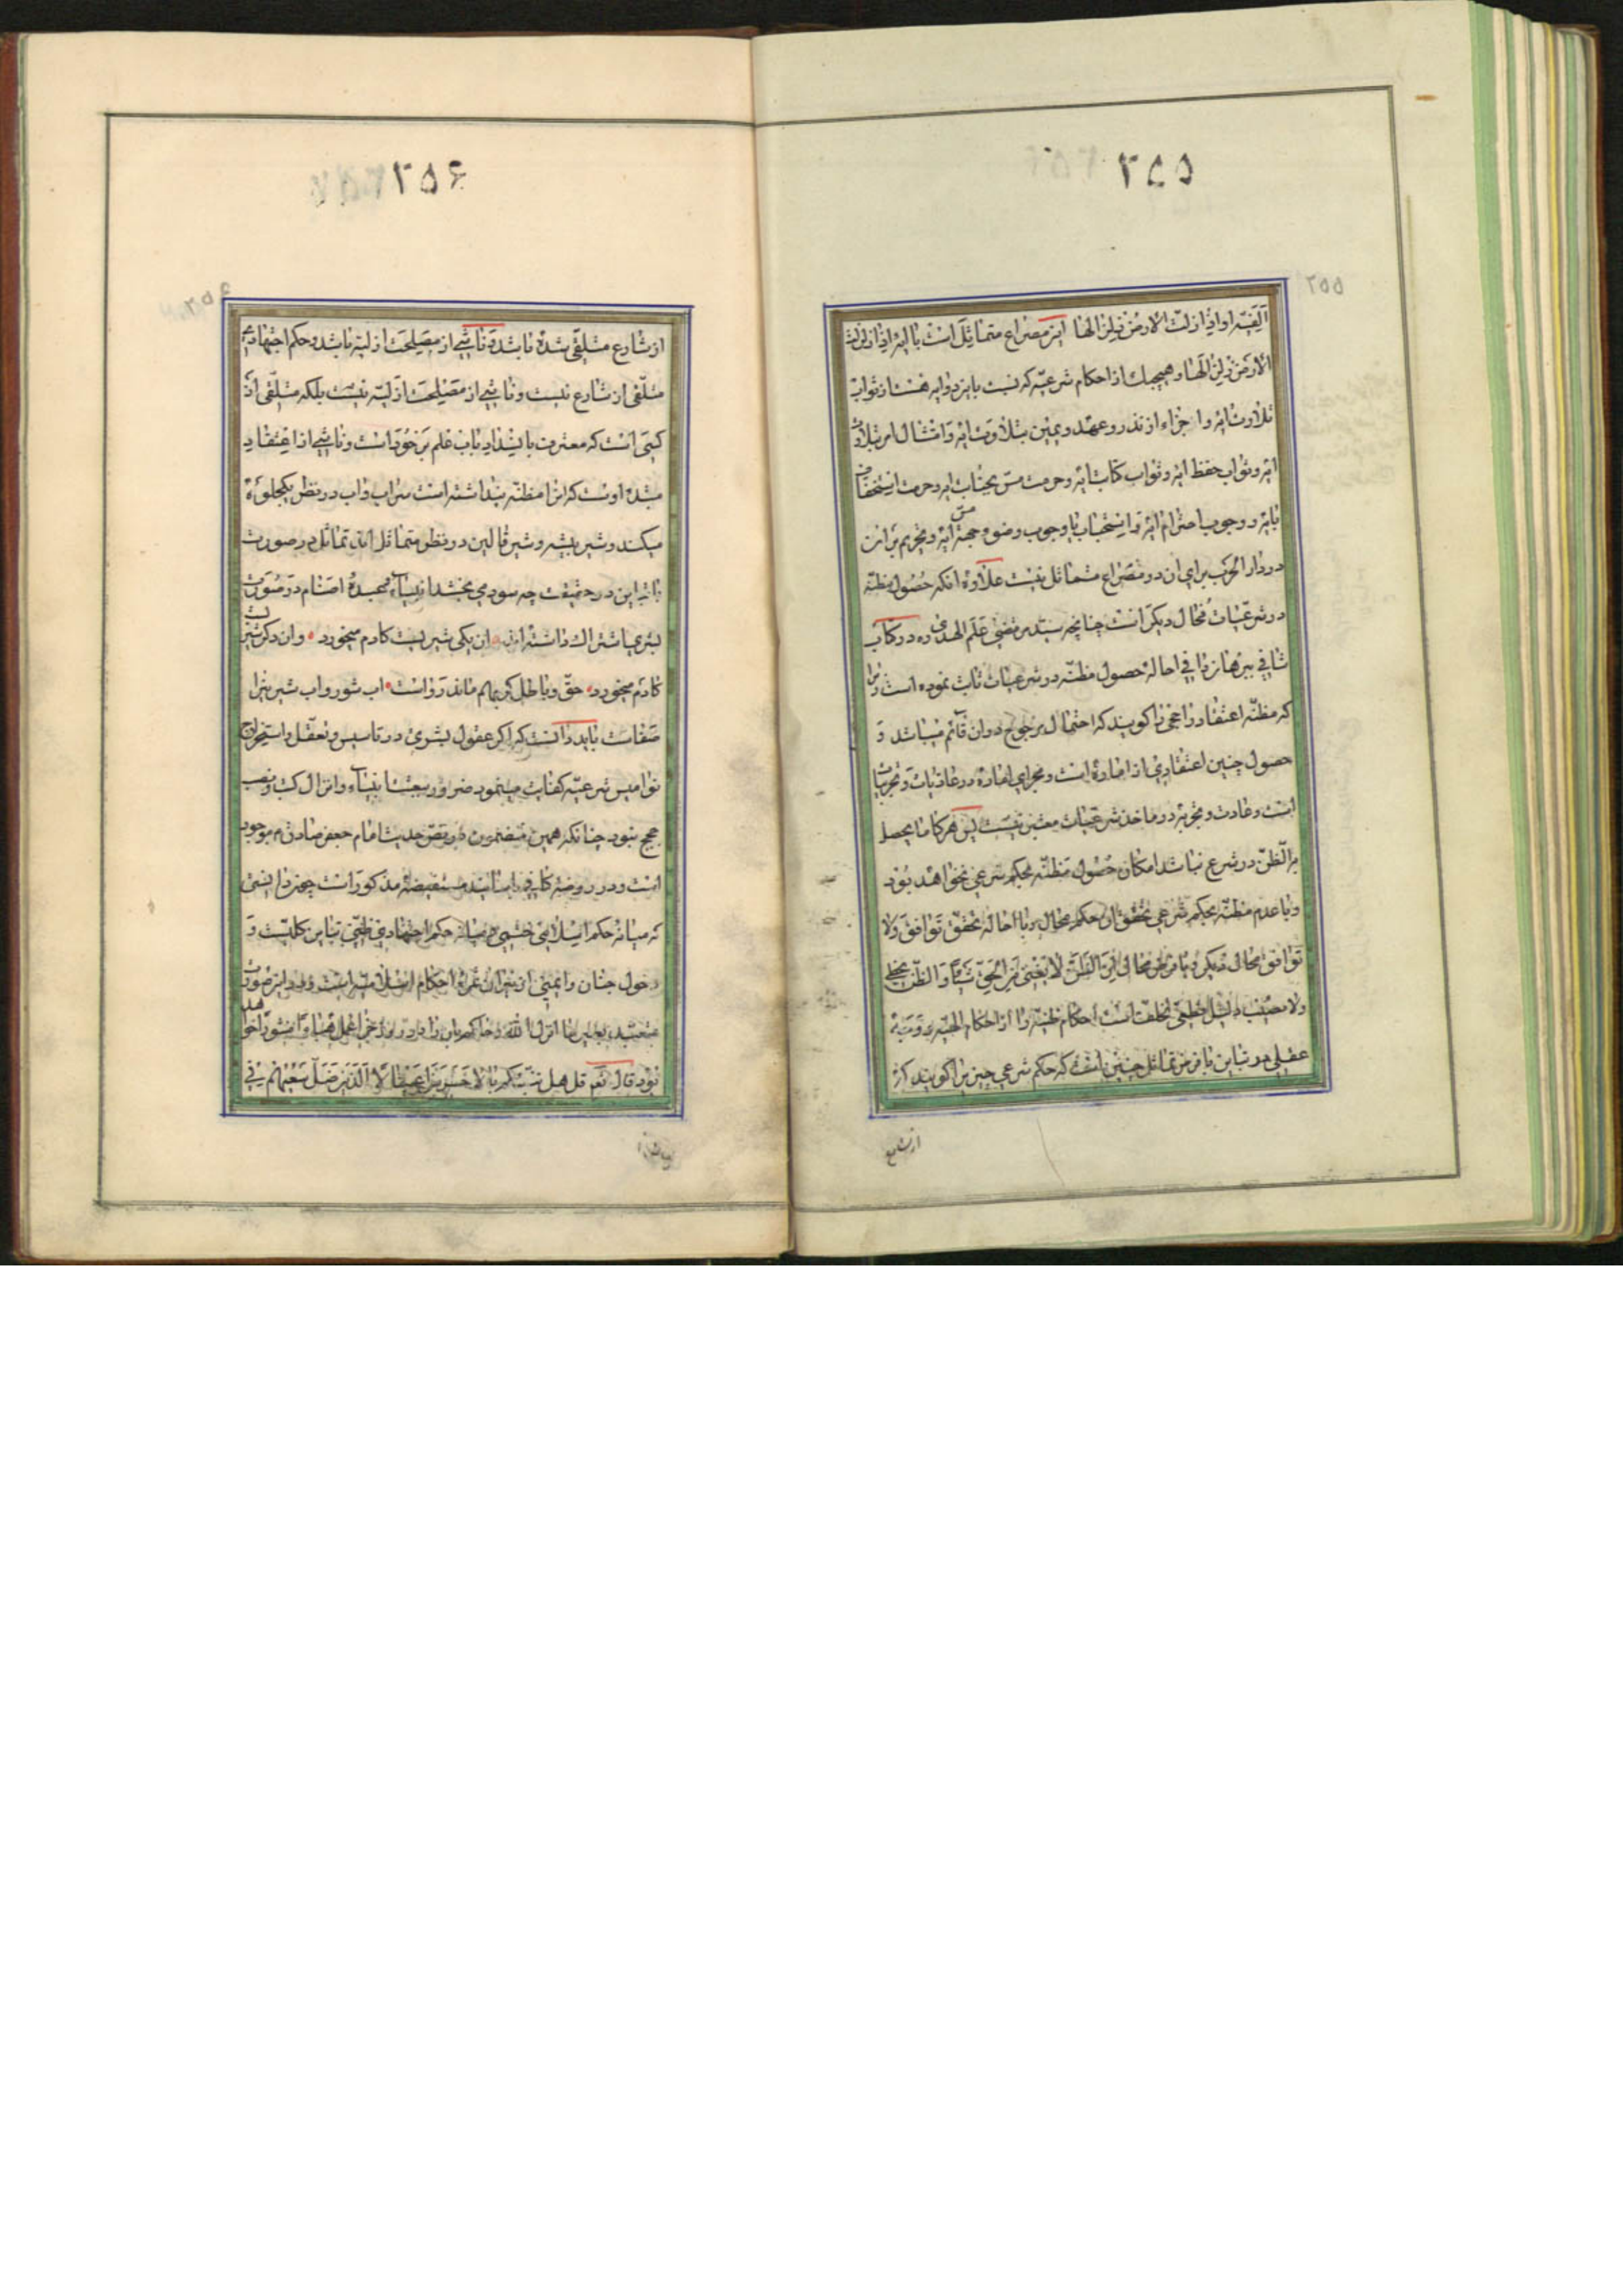 ۲۵۵
۲۵۵
الفیه او اذا زلزلت الارض زلزالها این مصراع متماثل است با آیه اذا زلزلت
الارض زلزالها و هیچیک از احکام شرعیه که نسبت باین دو آیه هست از ثواب
تلاوت آیه و اجزاء از نذر و عهد و یمین بتلاوت آیه و امتثال امر بتلاوت
آیه و ثواب حفظ آیه و ثواب کتابت آیه و حرمت مس کتابت آیه و حرمت استخفاف
بآیه و وجوب احترام آیه و استحباب یا وجوب وضو مس آیه و تحریم بردن
در دار الحرب برای آن در مصراع متماثل نیست علاوه آنکه حصول مظنه
در شرعیات محال دیگر است چنانچه سید مرتضی علم الهدی ره در کتاب
شافی برهان در احاله حصول مظنه در شرعیات ثابت نموده است زیرا
که مظنه اعتقاد راجحی را گویند که احتمال مرجوح در آن قائم میباشد و
حصول چنین اعتقادی از اماره است و مجرای اماره در عادیات و تجربیات
است و عادت و تجربه در ماخذ شرعیات معتبر نیست پس هرگاه ما یحصل
به الظن در شرع نباشد امکان حصول مظنه بحکم شرعی نخواهد بود
و با عدم مظنه بحکم شرعی تحقق آن حکم محال و با احاله تحقق توافق ولا
توافق محال دیگر و با فرض محال ان الظن لا یغنی من الحق شیئا و الظن یخطی
ولا مصیب دلیل قطعی تخلف است احکام ظنیه را از احکام الهیه و وجه
عقلی در تباین با فرض تماثل چنین است که حکم شرعی چیزیرا گویند که
از شارع
۲۵۶
۲۵۶
از شارع متلقی شده باشد و ناشی از مصلحت ازلیه باشد و حکم اجتهادی
متلقی از شارع نیست و ناشی از مصلحت ازلیه نیست بلکه متلقی از
کسی است که معترف بانسداد باب علم بر خود است و ناشی از اعتقاد
شده اوست که آنرا مظنه پنداشته است سراب و آب در نظر یک جلوه
میکند و شیر بیشه و شیر قالین در نظر متماثل اند تماثل در صورت
با تباین در حقیقت چه سودی بخشد انبیاء و عبده اصنام در صورت
بشری اشتراک داشته اند آن یکی شیریست کادم میخورد وان دگر شیریست
کادم میخورد حق و باطل گر بهم ماند رواست آب شور و آب شیرین را
صفاست باید دانست که اگر عقول بشری در تاسیس و تعقل و استخراج
نوامیس شرعیه کفایت مینمود ضرور ببعث انبیاء و انزال کتب و نصب
حجج نبود چنانکه همین مضمون در نص حدیث امام جعفر صادق ع موجود
است و در روضه کافی باسانید مستفیضه مذکور است چون دانستی
که میانه حکم اسلامی حتمی و میانه حکم اجتهادی ظنی تباین کلیست و
دخول جنان و ایمنی از نیران ثمره احکام اسلامیه است و در این صورت
متعبد بغیر ما انزل الله و حاکم بان را در روز جزا عمل هباء منثورا خواهد
بود قال نعم قل هل ننبئکم بالاخسرین اعمالا الذین ضل سعیهم فی